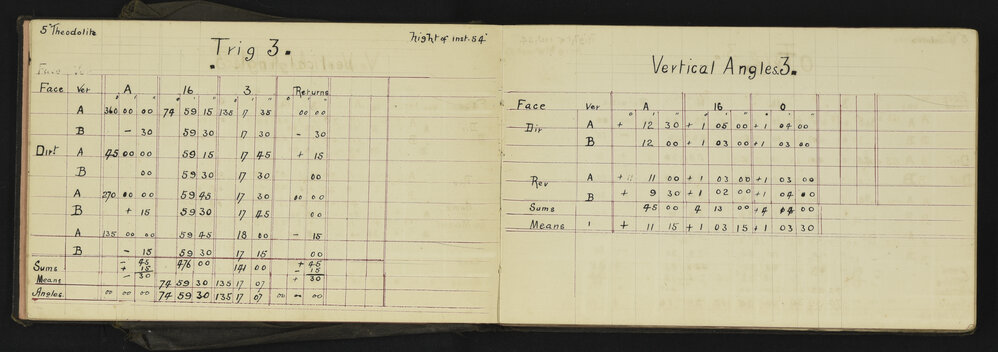 5" Theodolite hight of inst. 54"
Trig 3.
Face Ver A 16 3 Returns
° ' " ° ' " ° ' " ' "
A 360 00 00 74 59 15 135 17 35 00 00
B - 30 59 30 17 30 - 30
Dirt A 45 00 00 59 15 17 45 + 15
B 00 59 30 17 30 00
A 270 00 00 59 45 17 30 00 00
B + 15 59 30 17 45 00
A 135 00 00 59 45 18 00 - 15
B - 15 59 30 17 15 00
- 45 476 00 141 00 + 45
Sums + 15 - 15
Means - 30 74 59 30 135 17 07 + 30
Angles 00 00 00 74 59 30 135 17 07 00 - 00
Vertical Angles 3.
Face Ver A 16 0
° ' " ° ' " ° ' "
Dir A + 12 30 + 1 05 00 + 1 04 00
B 12 00 + 1 03 00 + 1 03 00
Rev A + 11 00 + 1 03 00 + 1 03 00
B + 9 30 + 1 02 00 + 1 04 00
Sums 45 00 4 13 00 + 4 04 00
Means + 11 15 + 1 03 15 + 1 03 30